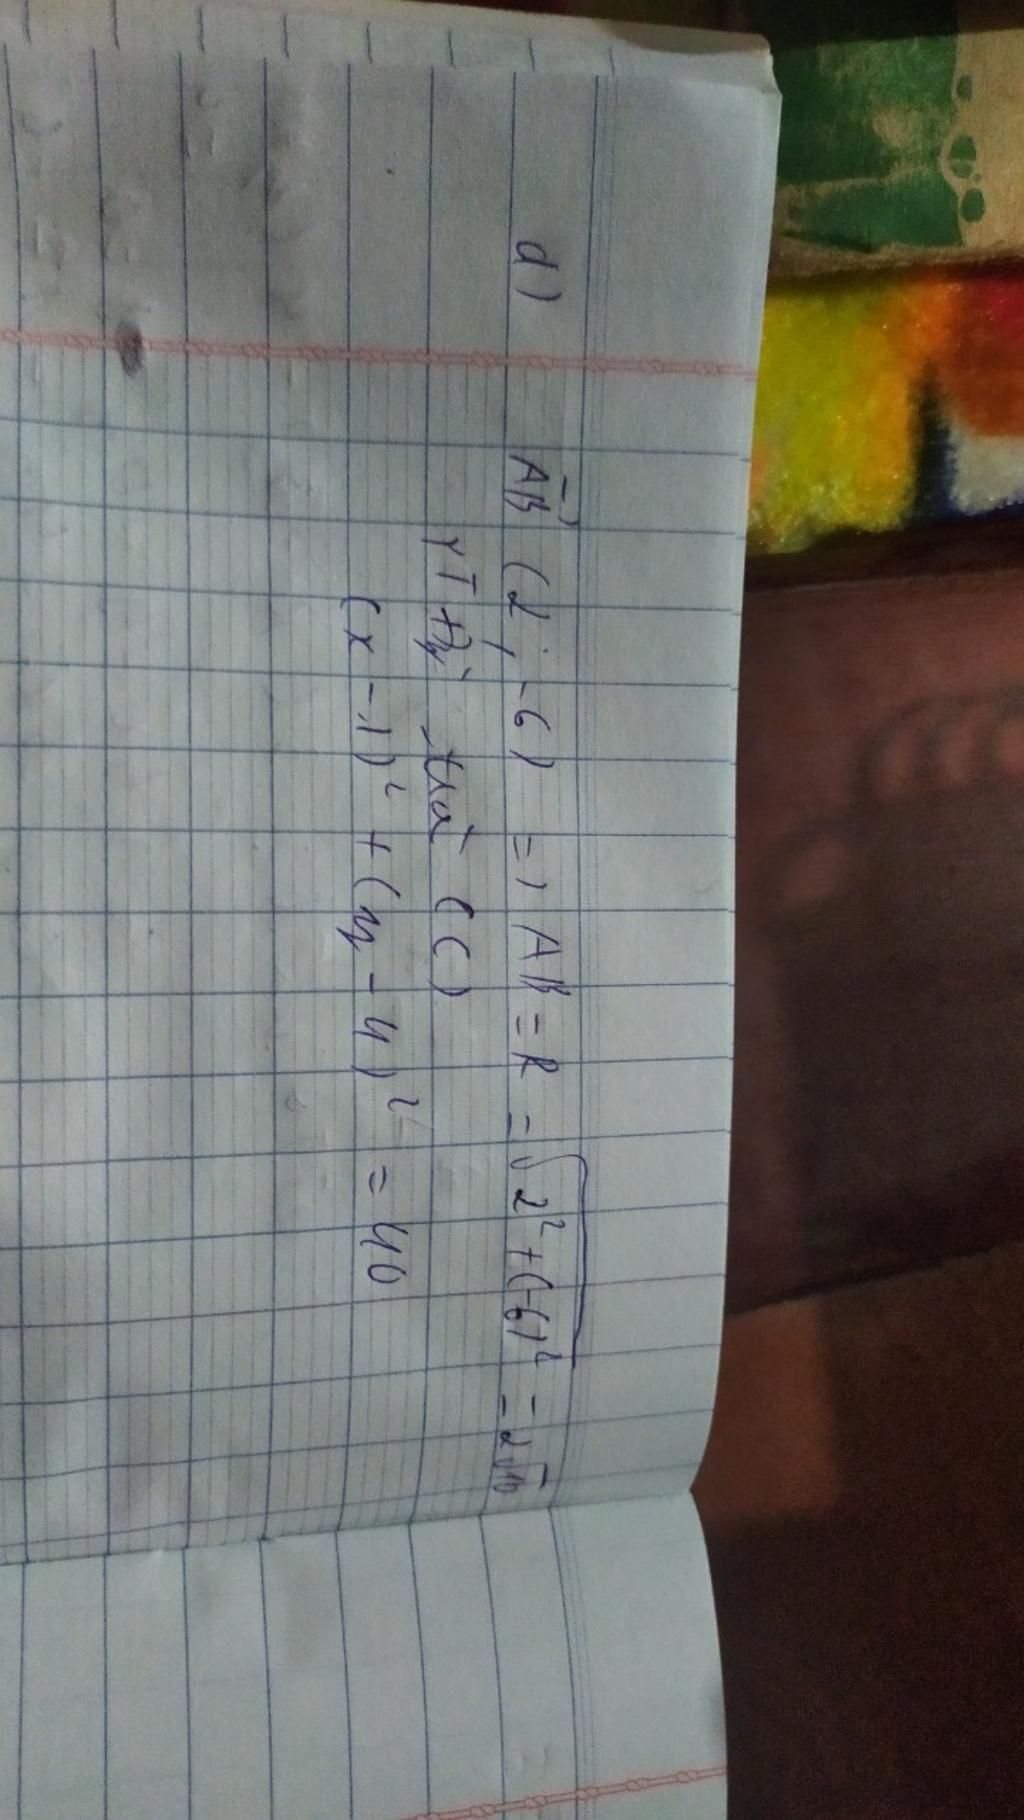 d) \overrightarrow{AB} (2; -6) => AB = R = \sqrt{2^2 + (-6)^2} = 2\sqrt{10}
của (C)
(x - 1)² + (y - 4)² = 40